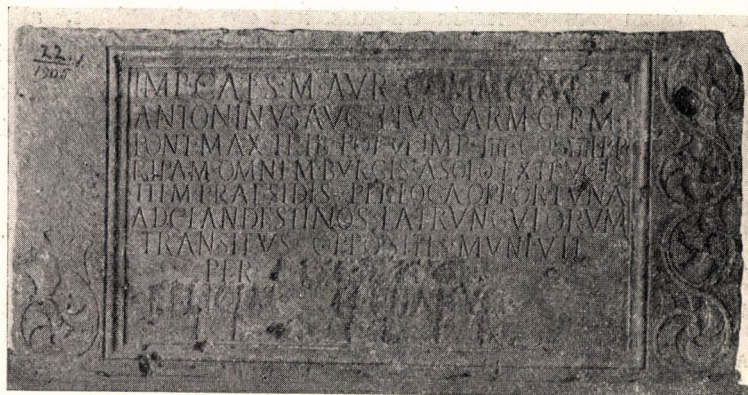 22
1905
IMP·CAES·M·AVR
ANTONINVS·AVG·PIVS·SARM·GERM
PONT·MAX·TRIB·POT·VI·IMP·IIII·COS·IIII·P·P
RIPAM·OMNEM·BVRGIS·A·SOLO·EXTRVCTIS
ITEM·PRAESIDIS·PER·LOCA·OPPORTVNA
AD·CLANDESTINOS·LATRVNCVLORVM
TRANSITVS·OPPOSITIS·MVNIVIT
PER